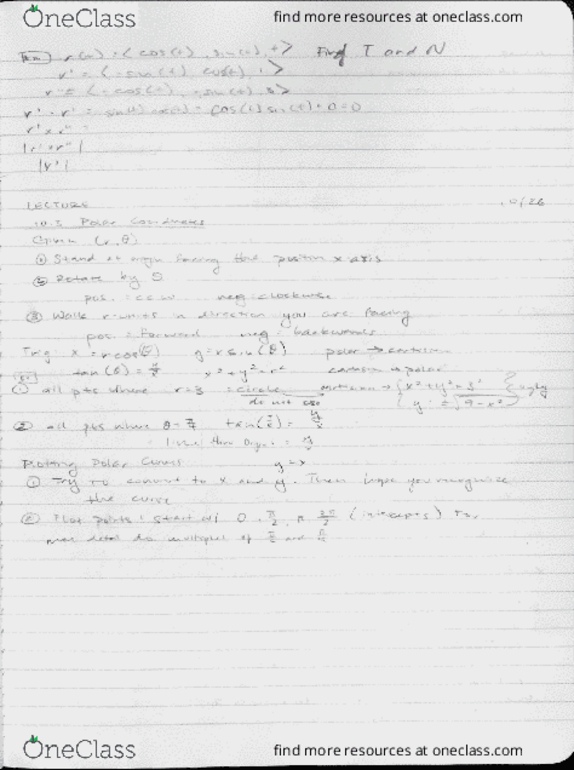 OneClass
find more resources at oneclass.com
r(t) = ⟨cos(t), sin(t), t⟩ Find T and N
r' = ⟨-sin(t), cos(t), 1⟩
r'' = ⟨-cos(t), -sin(t), 0⟩
cos(t)sin(t) + 0 = 0
r' x r'' =
|r' x r''|
|r'|
LECTURE 10/26
10.2 Polar Coordinates
Given (r, θ)
① Stand at origin facing the positive x axis
② Rotate by θ
pos. : ccw neg: clockwise
③ Walk r-units in direction you are facing
pos : Forward neg : backwards
Trig: x = r cos(θ) y = r sin(θ) polar → cartesian
tan(θ) = y/x x² + y² = r² cartesian → polar
① all pts where r = 3 = circle x² + y² = 3²
do not use y = ±√9 - x²
② all pts where θ = π/4 tan(π/4) = y/x
line thru
y = x
Plotting Polar Curves
① Try to convert to x and y. Then hope you recognize
the curve
② Plot points : start w/ 0, π/2, π, 3π/2 (intercepts)
more detail do multiples of
OneClass
find more resources at oneclass.com